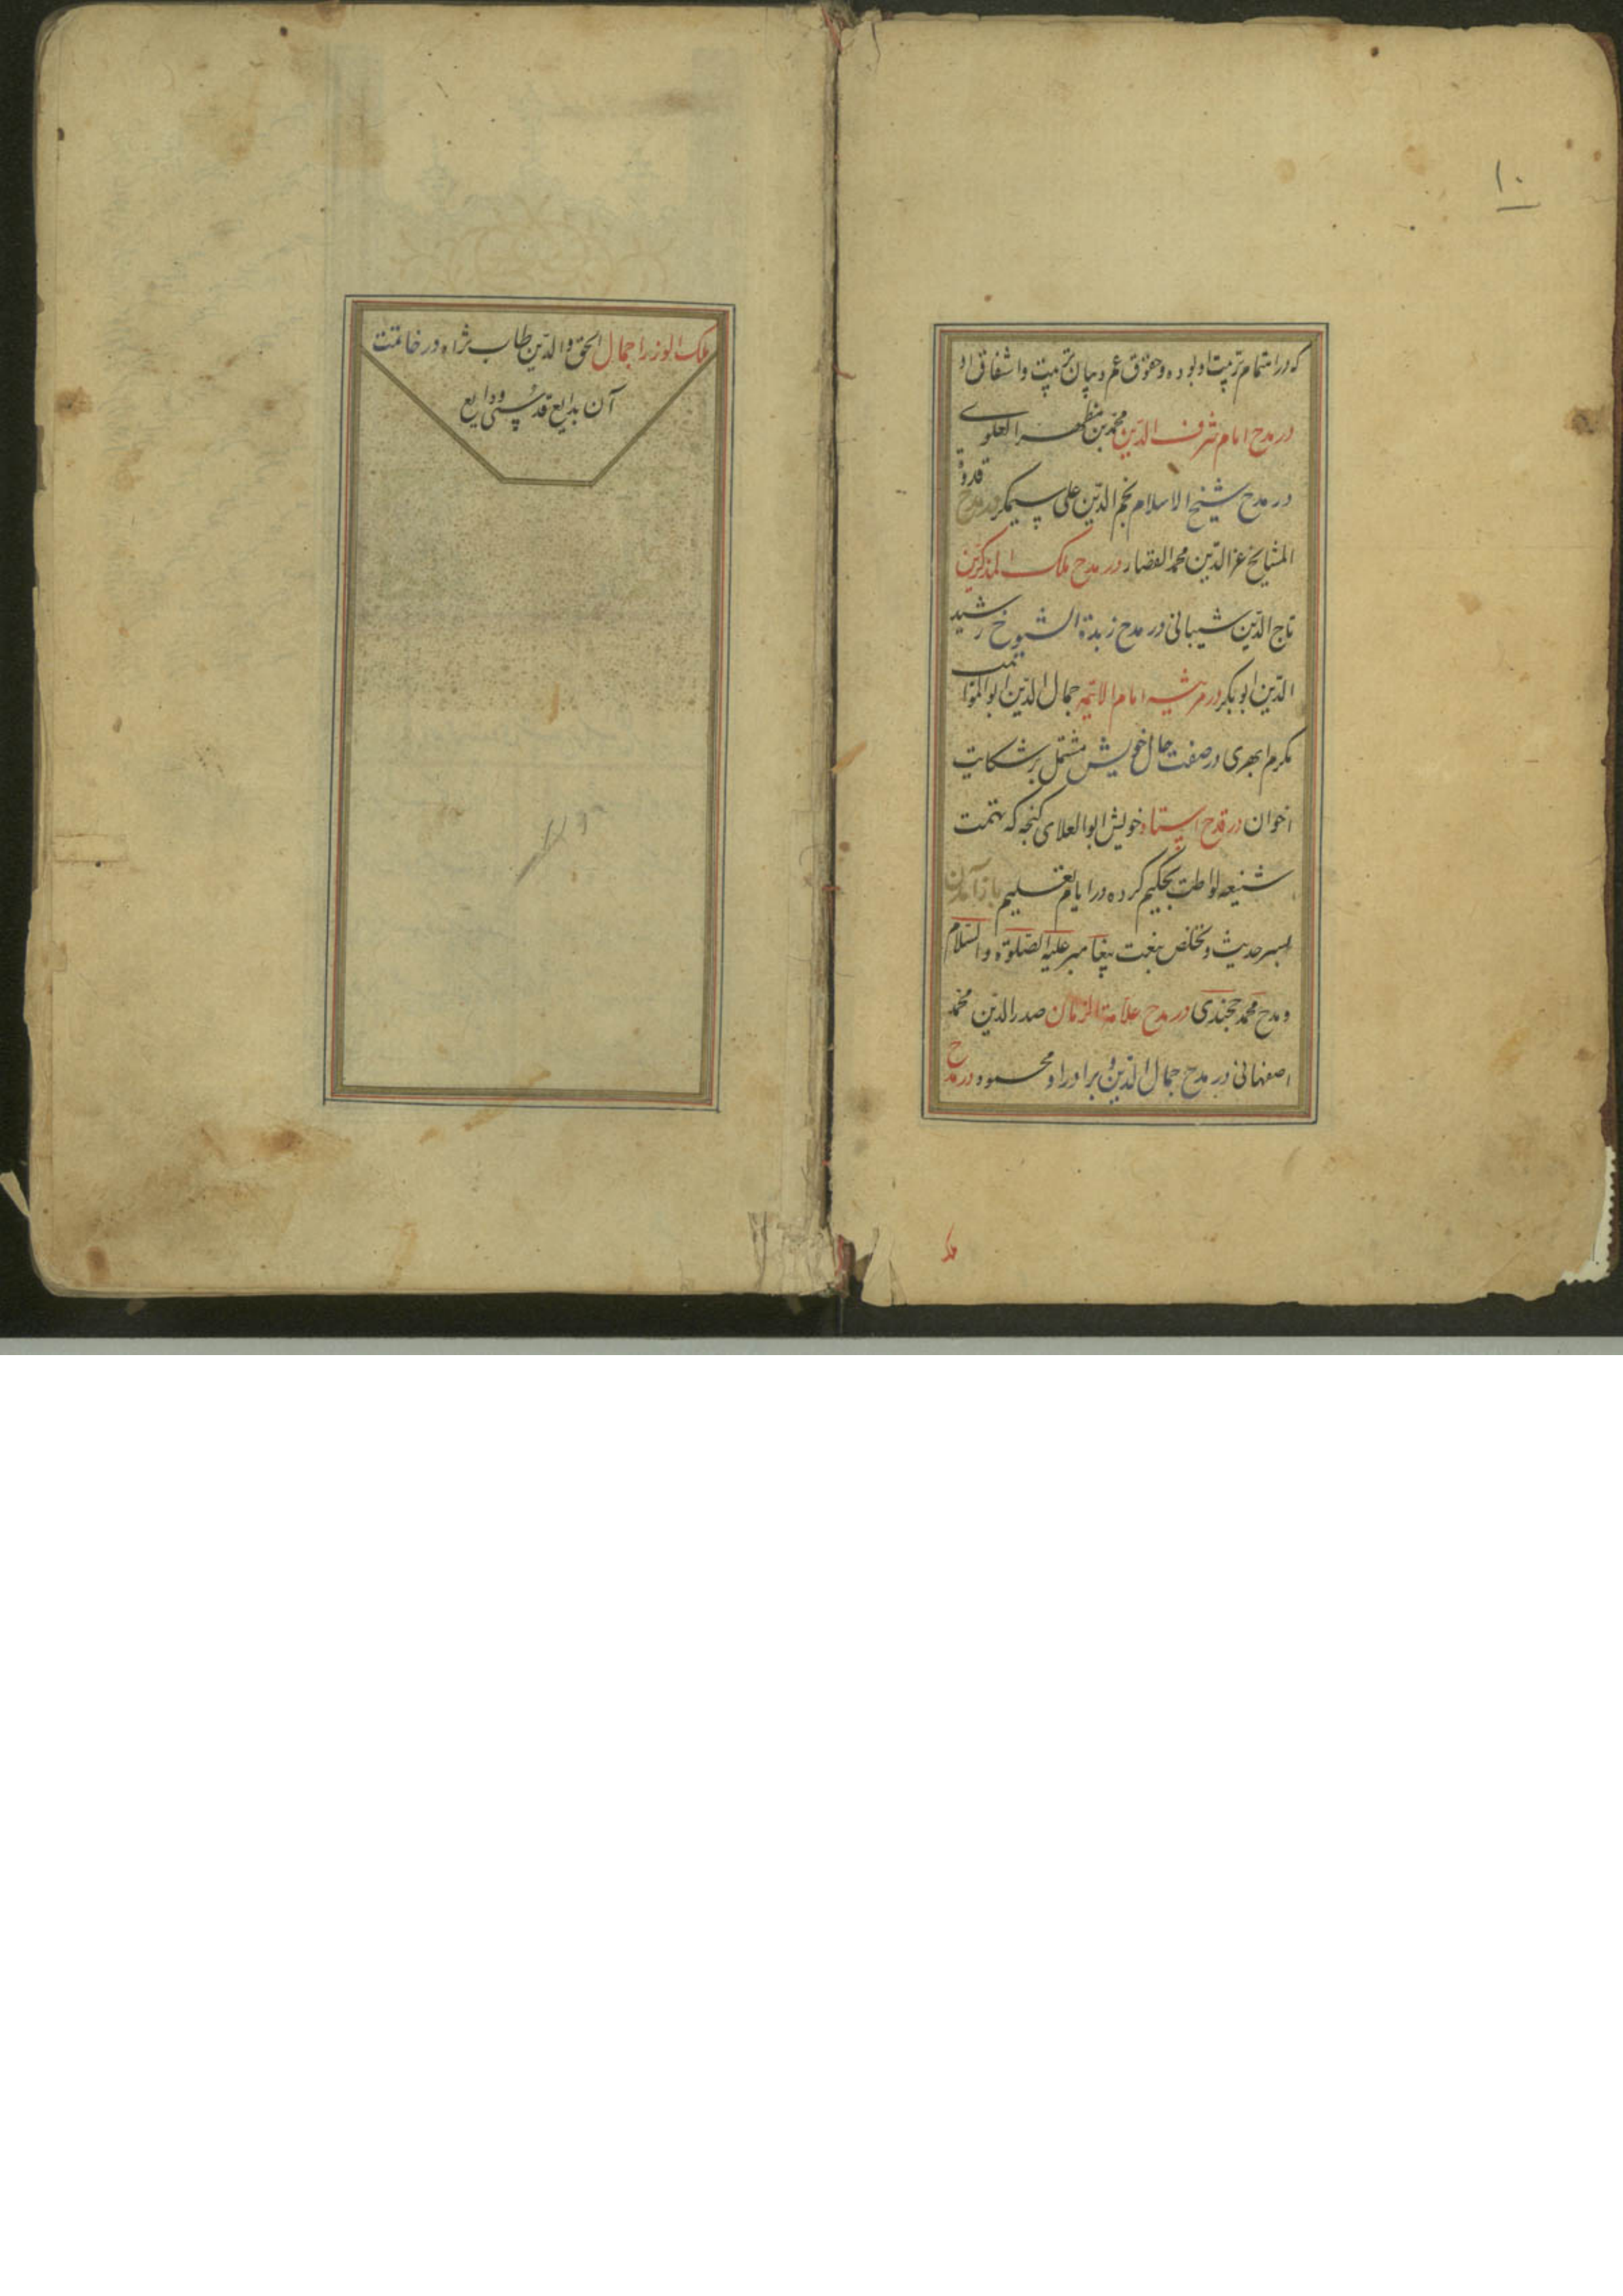 ۱۰
که در اهتمام تربیت او بوده و حقوق عم و بیان تربیت و اشفاق او
در مدح امام شرف الدین محمد بن مطهر العلوی
در مدح شیخ الاسلام نجم الدین علی سیمکر در مدح قدوة
المشایخ عز الدین محمد القصار در مدح ملک المذکرین
تاج الدین شیبانی در مدح زبدة الشیوخ رشید
الدین ابوبکر در مرثیه امام الائمه جمال الدین ابوالمواهب
مکرم ابهری در صفت حال خویش مشتمل بر شکایت
اخوان در قدح استاد خویش ابوالعلای کنجه که بتهمت
شنیعه لواطت بحکیم کرده در ایام تعلیم باز آمدن
بسر حدیث و تخلص بنعت پیغامبر علیه الصلوة والسلام
و مدح محمد خجندی در مدح علامة الزمان صدر الدین محمد
اصفهانی در مدح جمال الدین و برادر او محمود در مدح
ملک الوزرا جمال الحق والدین طاب ثراه در خاتمت
آن بدایع قدسی ودایع